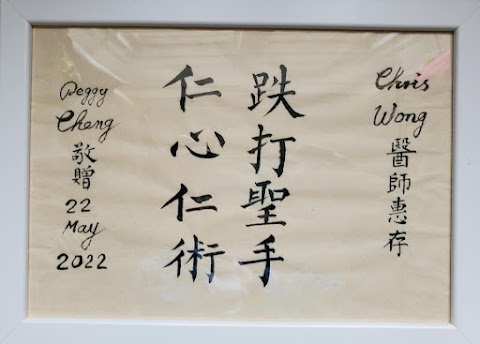 Chris
Wong
醫師惠存
跌打聖手
仁心仁術
Peggy
Cheng
敬贈
22
May
2022